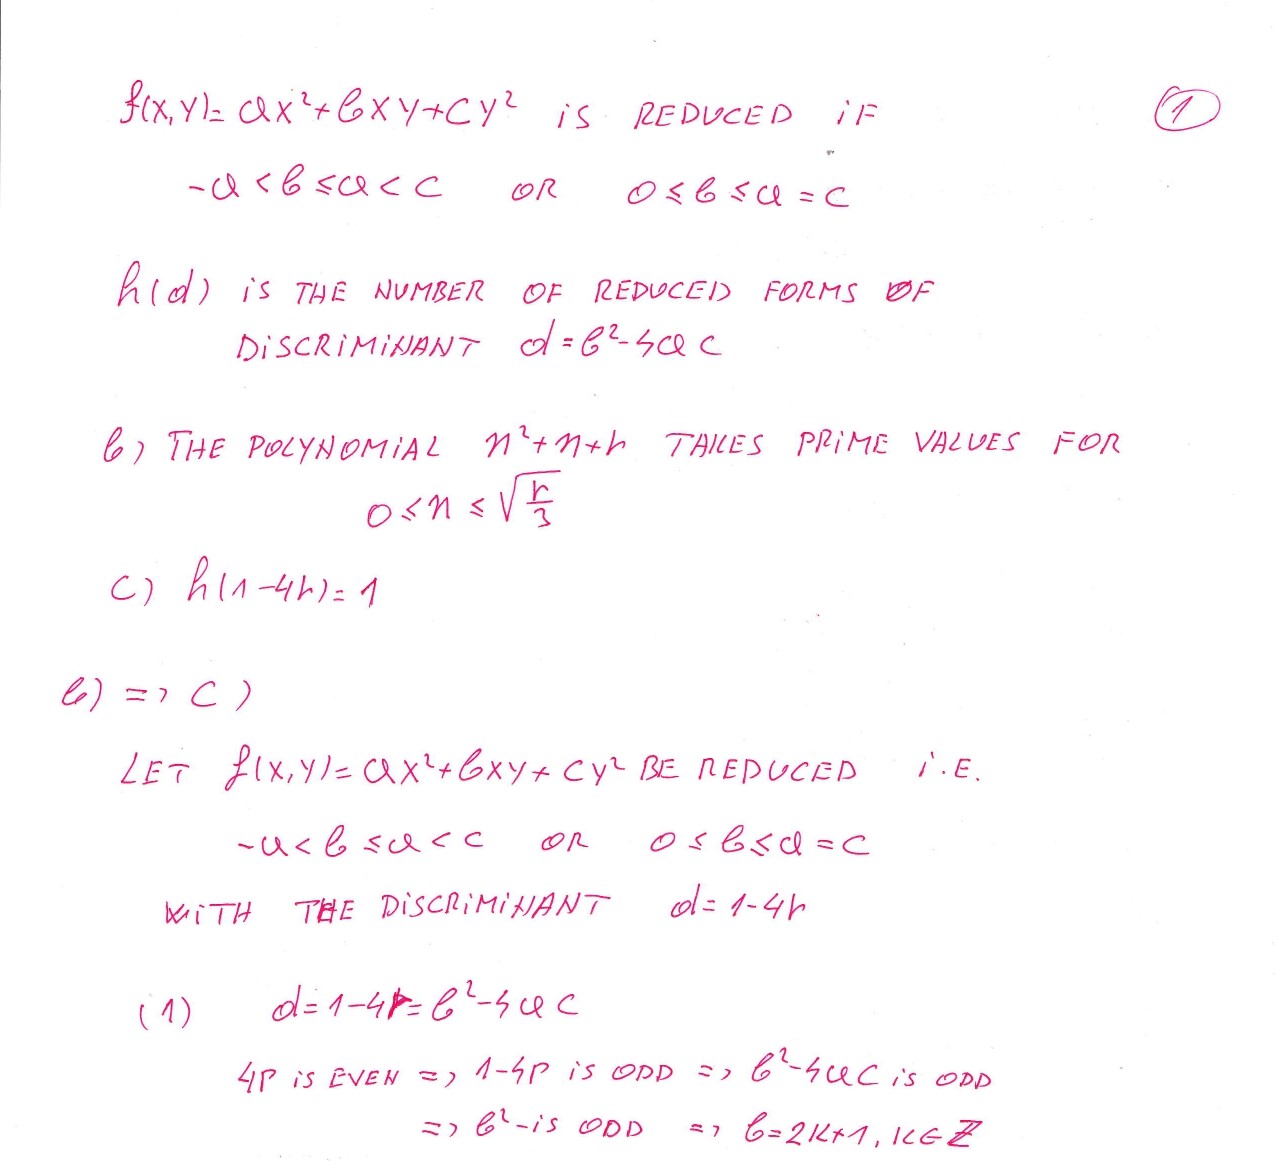 f(x,y)=ax²+bxy+cy² is REDUCED iF ①
-a<b≤a<c OR 0≤b≤a=c
h(d) is THE NUMBER OF REDUCED FORMS OF
DiSCRiMiNANT d=b²-4ac
b) THE POLYNOMiAL n²+n+p TAKES PRiME VALUES FOR
0≤n≤√(p/3)
C) h(1-4p)=1
b) => C)
LET f(x,y)=ax²+bxy+cy² BE REDUCED i.E.
-a<b≤a<c OR 0≤b≤a=c
WiTH THE DiSCRiMiNANT d=1-4p
(1) d=1-4p=b²-4ac
4p iS EVEN => 1-4p iS ODD => b²-4ac is ODD
=> b²-is ODD => b=2k+1, k∈ℤ